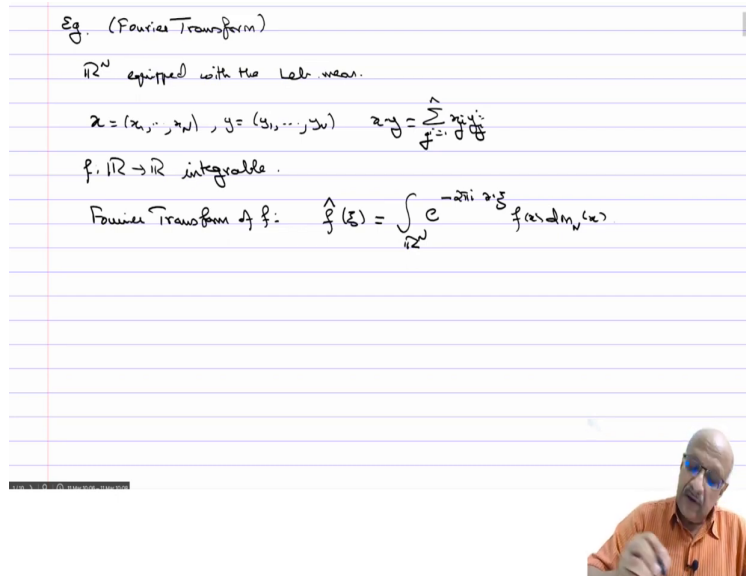 Eg. (Fourier Transform)
ℝᴺ equipped with the Leb. meas.
x = (x₁, ..., x_N), y = (y₁, ..., y_N) x·y = Σ_{j=1}^{N} x_j y_j
f: ℝ → ℝ integrable.
Fourier Transform of f: f̂(ξ) = ∫_{ℝᴺ} e^{-2πi x·ξ} f(x) dm_N(x).